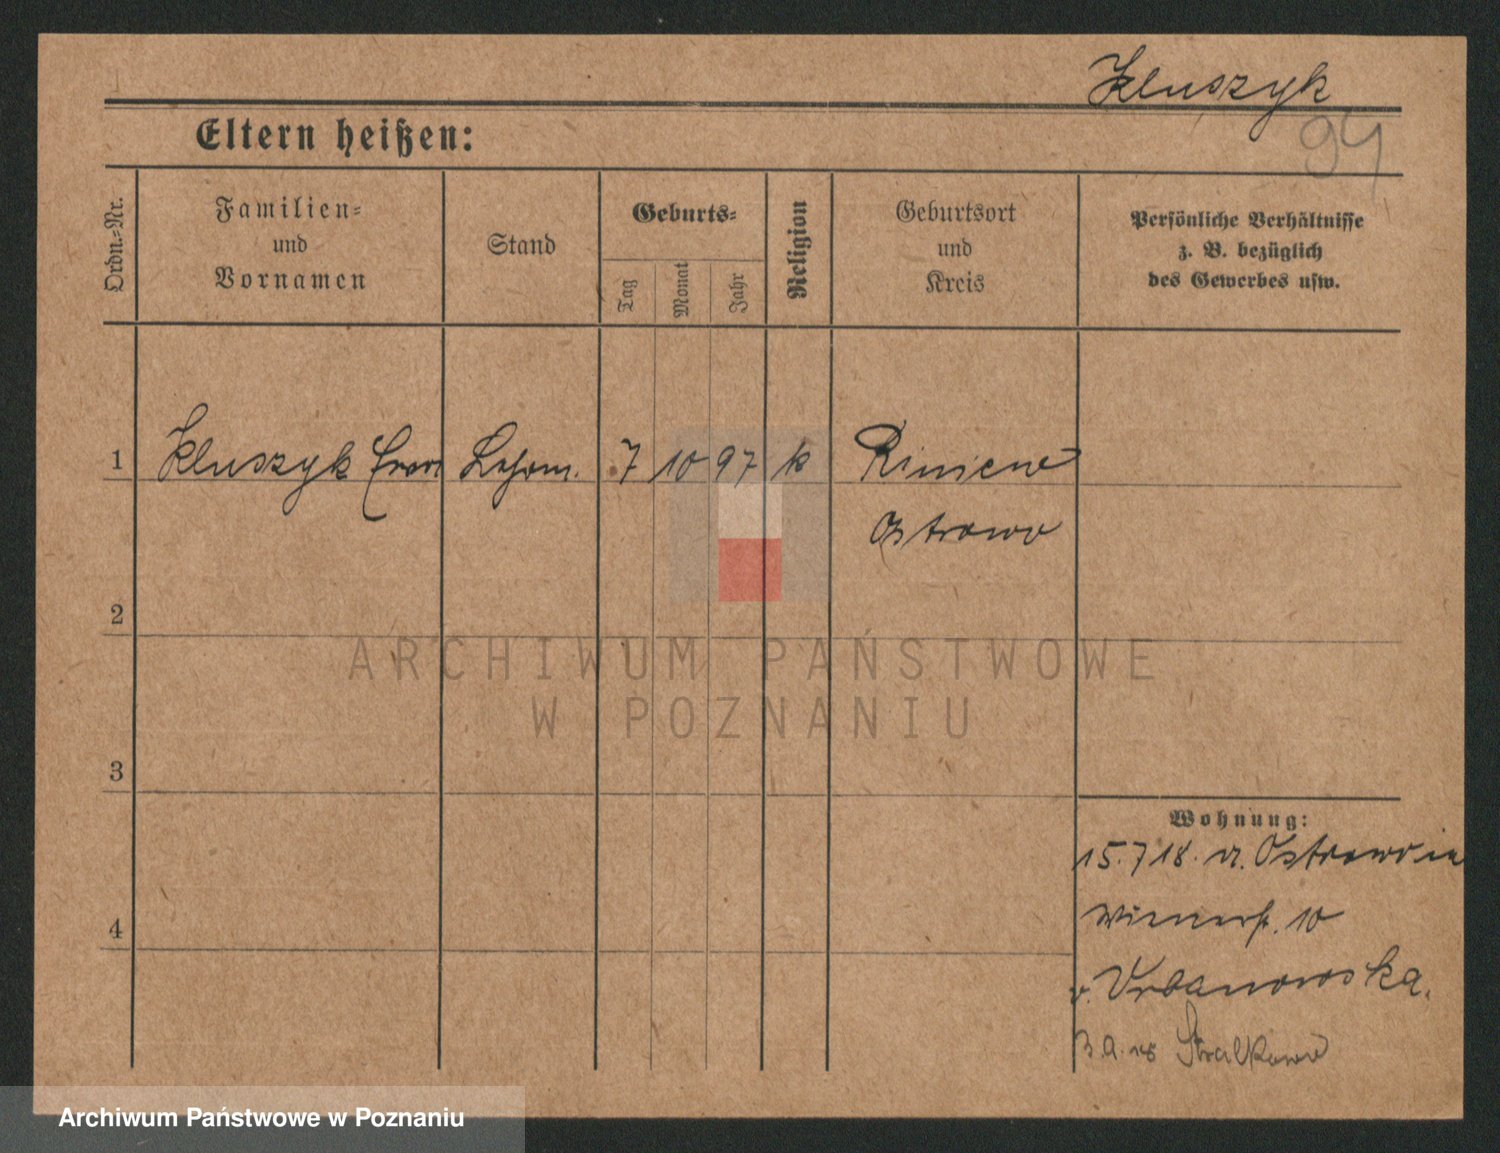 Kluszyk
94
Eltern heißen:
Ordn.-Nr.
Familien-
und
Vornamen
Stand
Geburts-
Tag
Monat
Jahr
Religion
Geburtsort
und
Kreis
Persönliche Verhältnisse
z. B. bezüglich
des Gewerbes usw.
1 Kluszyk 7 10 97 k
Ostrowo
2
ARCHIWUM PAŃSTWOWE
W POZNANIU
3
Wohnung:
15.7 18. v. Ostrowo in
Wienerstr. 10
4
v. Urbanowska.
Stralkowo
Archiwum Państwowe w Poznaniu